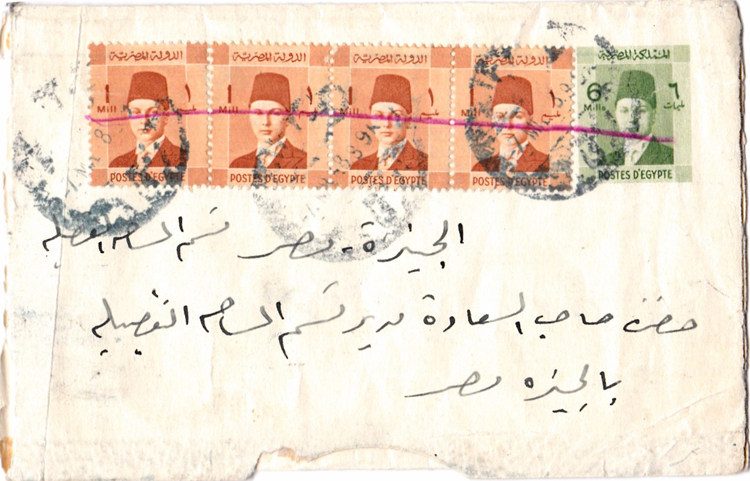 الدولة المصرية الدولة المصرية الدولة المصرية الدولة المصرية المملكة المصرية
1 ١ 1 ١ 1 ١ 1 ١ 6 ٦
Mill. مليم Mill. مليم Mill. مليم Mill. مليم Mills مليمات
POSTES D'EGYPTE POSTES D'EGYPTE POSTES D'EGYPTE POSTES D'EGYPTE POSTES D'EGYPTE
الجيزة - مصر قسم المساحه التفصيليه
حضرة صاحب السعادة مدير قسم المساحه التفصيليه
بالجيزه مصر